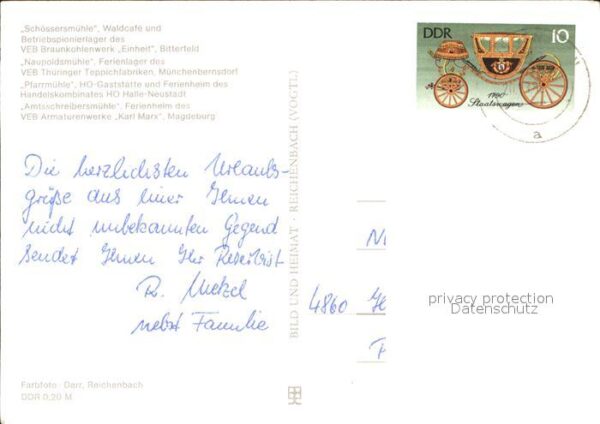 „Schössersmühle", Waldcafe und
Betriebspionierlager des
VEB Braunkohlenwerk „Einheit", Bitterfeld
„Naupoldsmühle", Ferienlager des
VEB Thüringer Teppichfabriken, Münchenbernsdorf
„Pfarrmühle", HO-Gaststätte und Ferienheim des
Handelskombinates HO Halle-Neustadt
„Amtsschreibersmühle", Ferienheim des
VEB Armaturenwerke „Karl Marx", Magdeburg
DDR 10
1790
Staatswagen
a
Die herzlichsten Urlaubs-
grüße aus einer Ihnen
nicht unbekannten Gegend
sendet Ihnen Ihr Reservist
R.
nebst Familie
BILD UND HEIMAT · REICHENBACH (VOGTL)
4860
privacy protection
Datenschutz
Farbfoto: Darr, Reichenbach
DDR 0,20 M